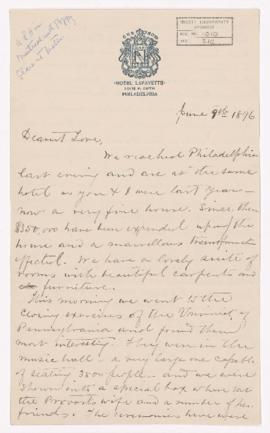 HOTEL LAFAYETTE
PHILADELPHIA
June 9th 1896
Dearest Love,
We reached Philadelphia
last evening and are at the same
hotel as you & I were last year—
now a very fine house. Since then
$350,000 have been expended upon the
house and a marvellous transformation
effected. We have a lovely suite of
rooms with beautiful carpets and
furniture.
This morning we went to the
closing exercises of the University of
Pennsylvania and found them
most interesting. They were in the
music hall — a very large one capable
of seating 3500 people — and we were
shown into a special box where sat
the Provost's wife and a number of her
friends. The ceremonies here were